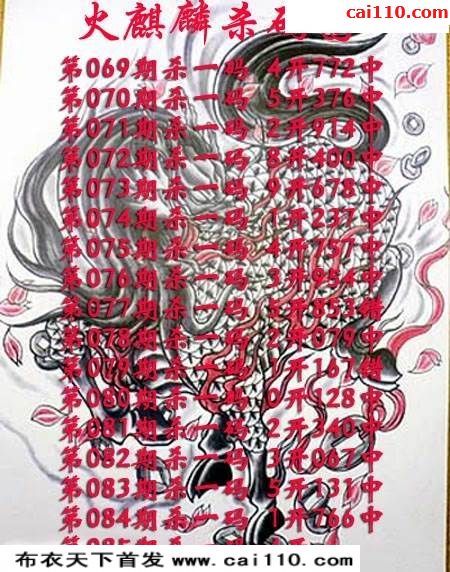 cai110.com
火麒麟杀
第069期杀一码 4开772中
第070期杀一码 5开376中
第071期杀一码 2开914中
第072期杀一码 8开400中
第073期杀一码 9开678中
第074期杀一码 1开237中
第075期杀一码 4开757中
第076期杀一码 3开954中
第077期杀一码 5开853错
第078期杀一码 2开079中
第079期杀一码 1开167错
第080期杀一码 0开128中
第081期杀一码 2开340中
第082期杀一码 3开067中
第083期杀一码 5开131中
第084期杀一码 1开766中
布衣天下首发 www.cai110.com